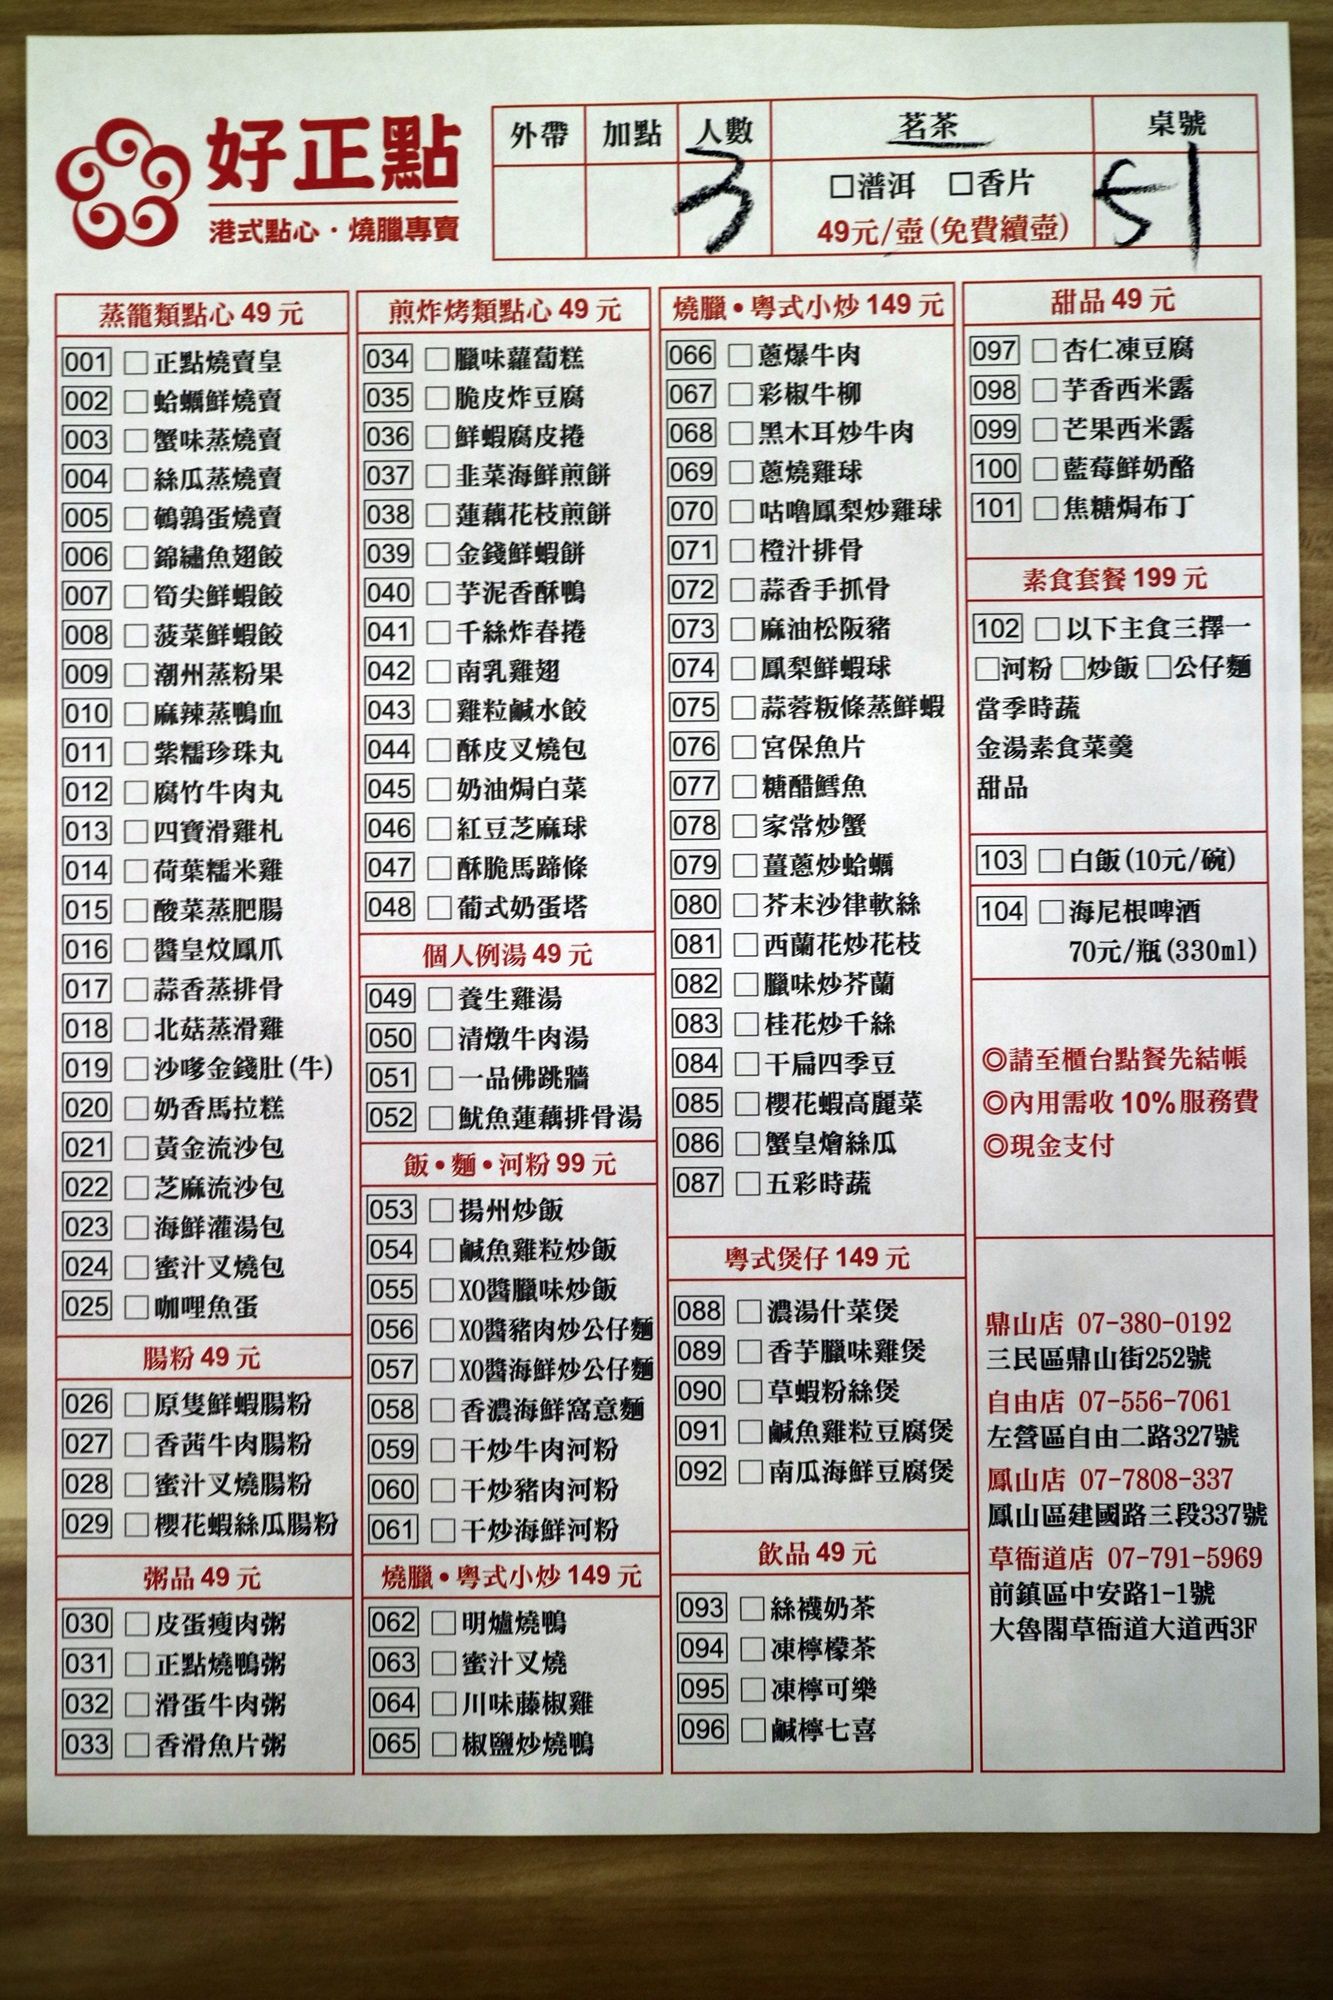 好正點
港式點心・燒臘專賣
外帶 加點 人數 茗茶 桌號
3 □潽洱 □香片 51
49元/壺(免費續壺)
蒸籠類點心 49 元
001 □正點燒賣皇
002 □蛤蠣鮮燒賣
003 □蟹味蒸燒賣
004 □絲瓜蒸燒賣
005 □鵪鶉蛋燒賣
006 □錦繡魚翅餃
007 □筍尖鮮蝦餃
008 □菠菜鮮蝦餃
009 □潮州蒸粉果
010 □麻辣蒸鴨血
011 □紫糯珍珠丸
012 □腐竹牛肉丸
013 □四寶滑雞札
014 □荷葉糯米雞
015 □酸菜蒸肥腸
016 □醬皇炆鳳爪
017 □蒜香蒸排骨
018 □北菇蒸滑雞
019 □沙嗲金錢肚(牛)
020 □奶香馬拉糕
021 □黃金流沙包
022 □芝麻流沙包
023 □海鮮灌湯包
024 □蜜汁叉燒包
025 □咖哩魚蛋
腸粉 49 元
026 □原隻鮮蝦腸粉
027 □香茜牛肉腸粉
028 □蜜汁叉燒腸粉
029 □櫻花蝦絲瓜腸粉
粥品 49 元
030 □皮蛋瘦肉粥
031 □正點燒鴨粥
032 □滑蛋牛肉粥
033 □香滑魚片粥
煎炸烤類點心 49 元
034 □臘味蘿蔔糕
035 □脆皮炸豆腐
036 □鮮蝦腐皮捲
037 □韭菜海鮮煎餅
038 □蓮藕花枝煎餅
039 □金錢鮮蝦餅
040 □芋泥香酥鴨
041 □千絲炸春捲
042 □南乳雞翅
043 □雞粒鹹水餃
044 □酥皮叉燒包
045 □奶油焗白菜
046 □紅豆芝麻球
047 □酥脆馬蹄條
048 □葡式奶蛋塔
個人例湯 49 元
049 □養生雞湯
050 □清燉牛肉湯
051 □一品佛跳牆
052 □魷魚蓮藕排骨湯
飯・麵・河粉 99 元
053 □揚州炒飯
054 □鹹魚雞粒炒飯
055 □XO醬臘味炒飯
056 □XO醬豬肉炒公仔麵
057 □XO醬海鮮炒公仔麵
058 □香濃海鮮窩意麵
059 □干炒牛肉河粉
060 □干炒豬肉河粉
061 □干炒海鮮河粉
燒臘・粵式小炒 149 元
062 □明爐燒鴨
063 □蜜汁叉燒
064 □川味藤椒雞
065 □椒鹽炒燒鴨
燒臘・粵式小炒 149 元
066 □蔥爆牛肉
067 □彩椒牛柳
068 □黑木耳炒牛肉
069 □蔥燒雞球
070 □咕嚕鳳梨炒雞球
071 □橙汁排骨
072 □蒜香手抓骨
073 □麻油松阪豬
074 □鳳梨鮮蝦球
075 □蒜蓉粄條蒸鮮蝦
076 □宮保魚片
077 □糖醋鱈魚
078 □家常炒蟹
079 □薑蔥炒蛤蠣
080 □芥末沙律軟絲
081 □西蘭花炒花枝
082 □臘味炒芥蘭
083 □桂花炒千絲
084 □干扁四季豆
085 □櫻花蝦高麗菜
086 □蟹皇燴絲瓜
087 □五彩時蔬
粵式煲仔 149 元
088 □濃湯什菜煲
089 □香芋臘味雞煲
090 □草蝦粉絲煲
091 □鹹魚雞粒豆腐煲
092 □南瓜海鮮豆腐煲
飲品 49 元
093 □絲襪奶茶
094 □凍檸檬茶
095 □凍檸可樂
096 □鹹檸七喜
甜品 49 元
097 □杏仁凍豆腐
098 □芋香西米露
099 □芒果西米露
100 □藍莓鮮奶酪
101 □焦糖焗布丁
素食套餐 199 元
102 □以下主食三擇一
□河粉 □炒飯 □公仔麵
當季時蔬
金湯素食菜羹
甜品
103 □白飯(10元/碗)
104 □海尼根啤酒
70元/瓶(330ml)
◎請至櫃台點餐先結帳
◎內用需收 10% 服務費
◎現金支付
鼎山店 07-380-0192
三民區鼎山街252號
自由店 07-556-7061
左營區自由二路327號
鳳山店 07-7808-337
鳳山區建國路三段337號
草衙道店 07-791-5969
前鎮區中安路1-1號
大魯閣草衙道大道西3F